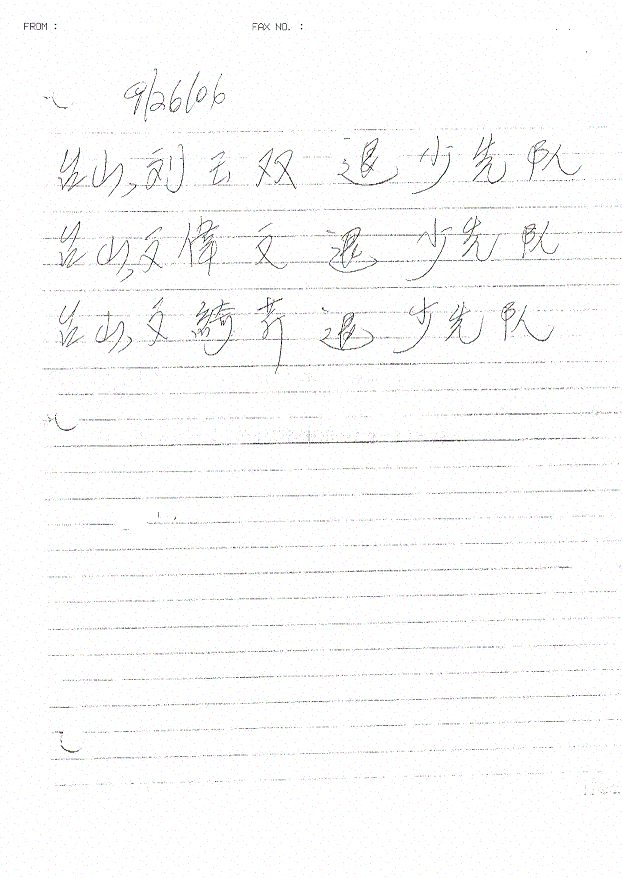 FROM : FAX NO. :
9/26/06
台山,刘云双 退 少先队
台山,文偉文 退 少先队
台山,文綺 退 少先队